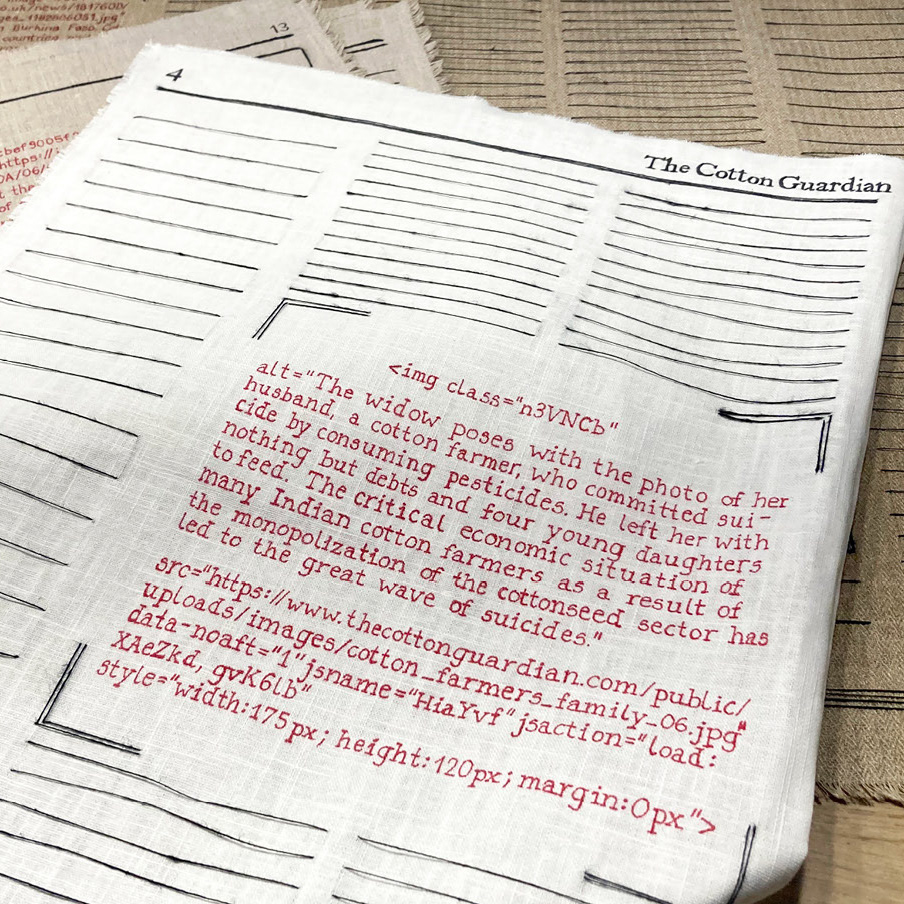 ok.uk/news/1817600/
es_1182806051.jpg"
Burkina Faso
countries
13
cbef9005f
https://
0A/06/
t the
of
4
The Cotton Guardian
<img class="n3VNCb"
alt="The widow poses with the photo of her
husband, a cotton farmer, who committed sui-
cide by consuming pesticides. He left her with
nothing but debts and four young daughters
to feed. The critical economic situation of
many Indian cotton farmers as a result of
the monopolization of the cottonseed sector has
led to the great wave of suicides."
src="https://www.thecottonguardian.com/public/
uploads/images/cotton_farmers_family_06.jpg"
data-noaft="1"jsname="HiaYvf"jsaction="load:
XAeZkd, gvK6lb"
style="width:175px; height:120px; margin:0px">